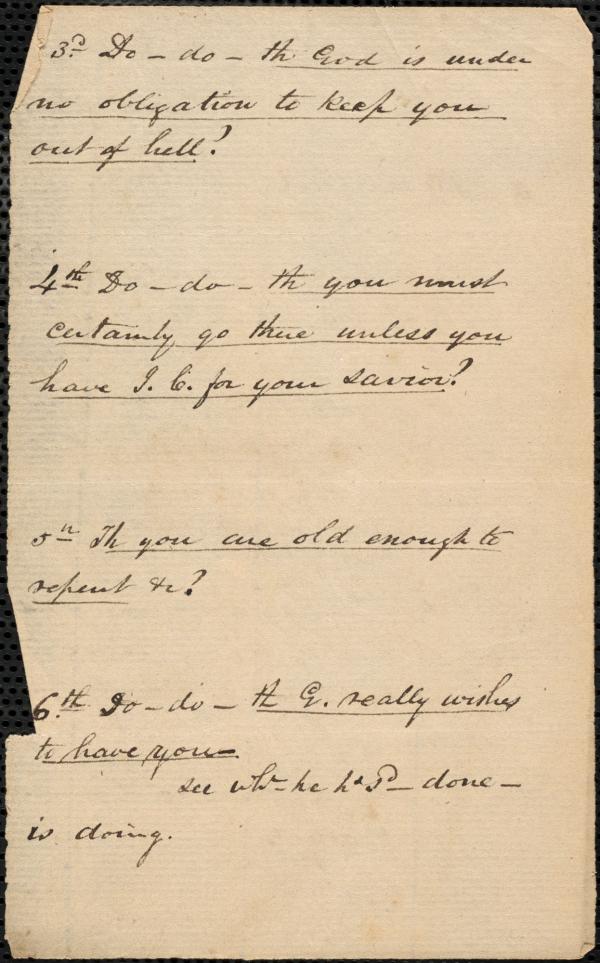 3d Do - do - th God is under
no obligation to keep you
out of hell?
4th Do - do - th you must
certainly go there unless you
have J. C. for your savior?
5th Th you are old enough to
repent &c?
6th Do - do - th G. really wishes
to have you -
see wht - he hs - done -
is doing.